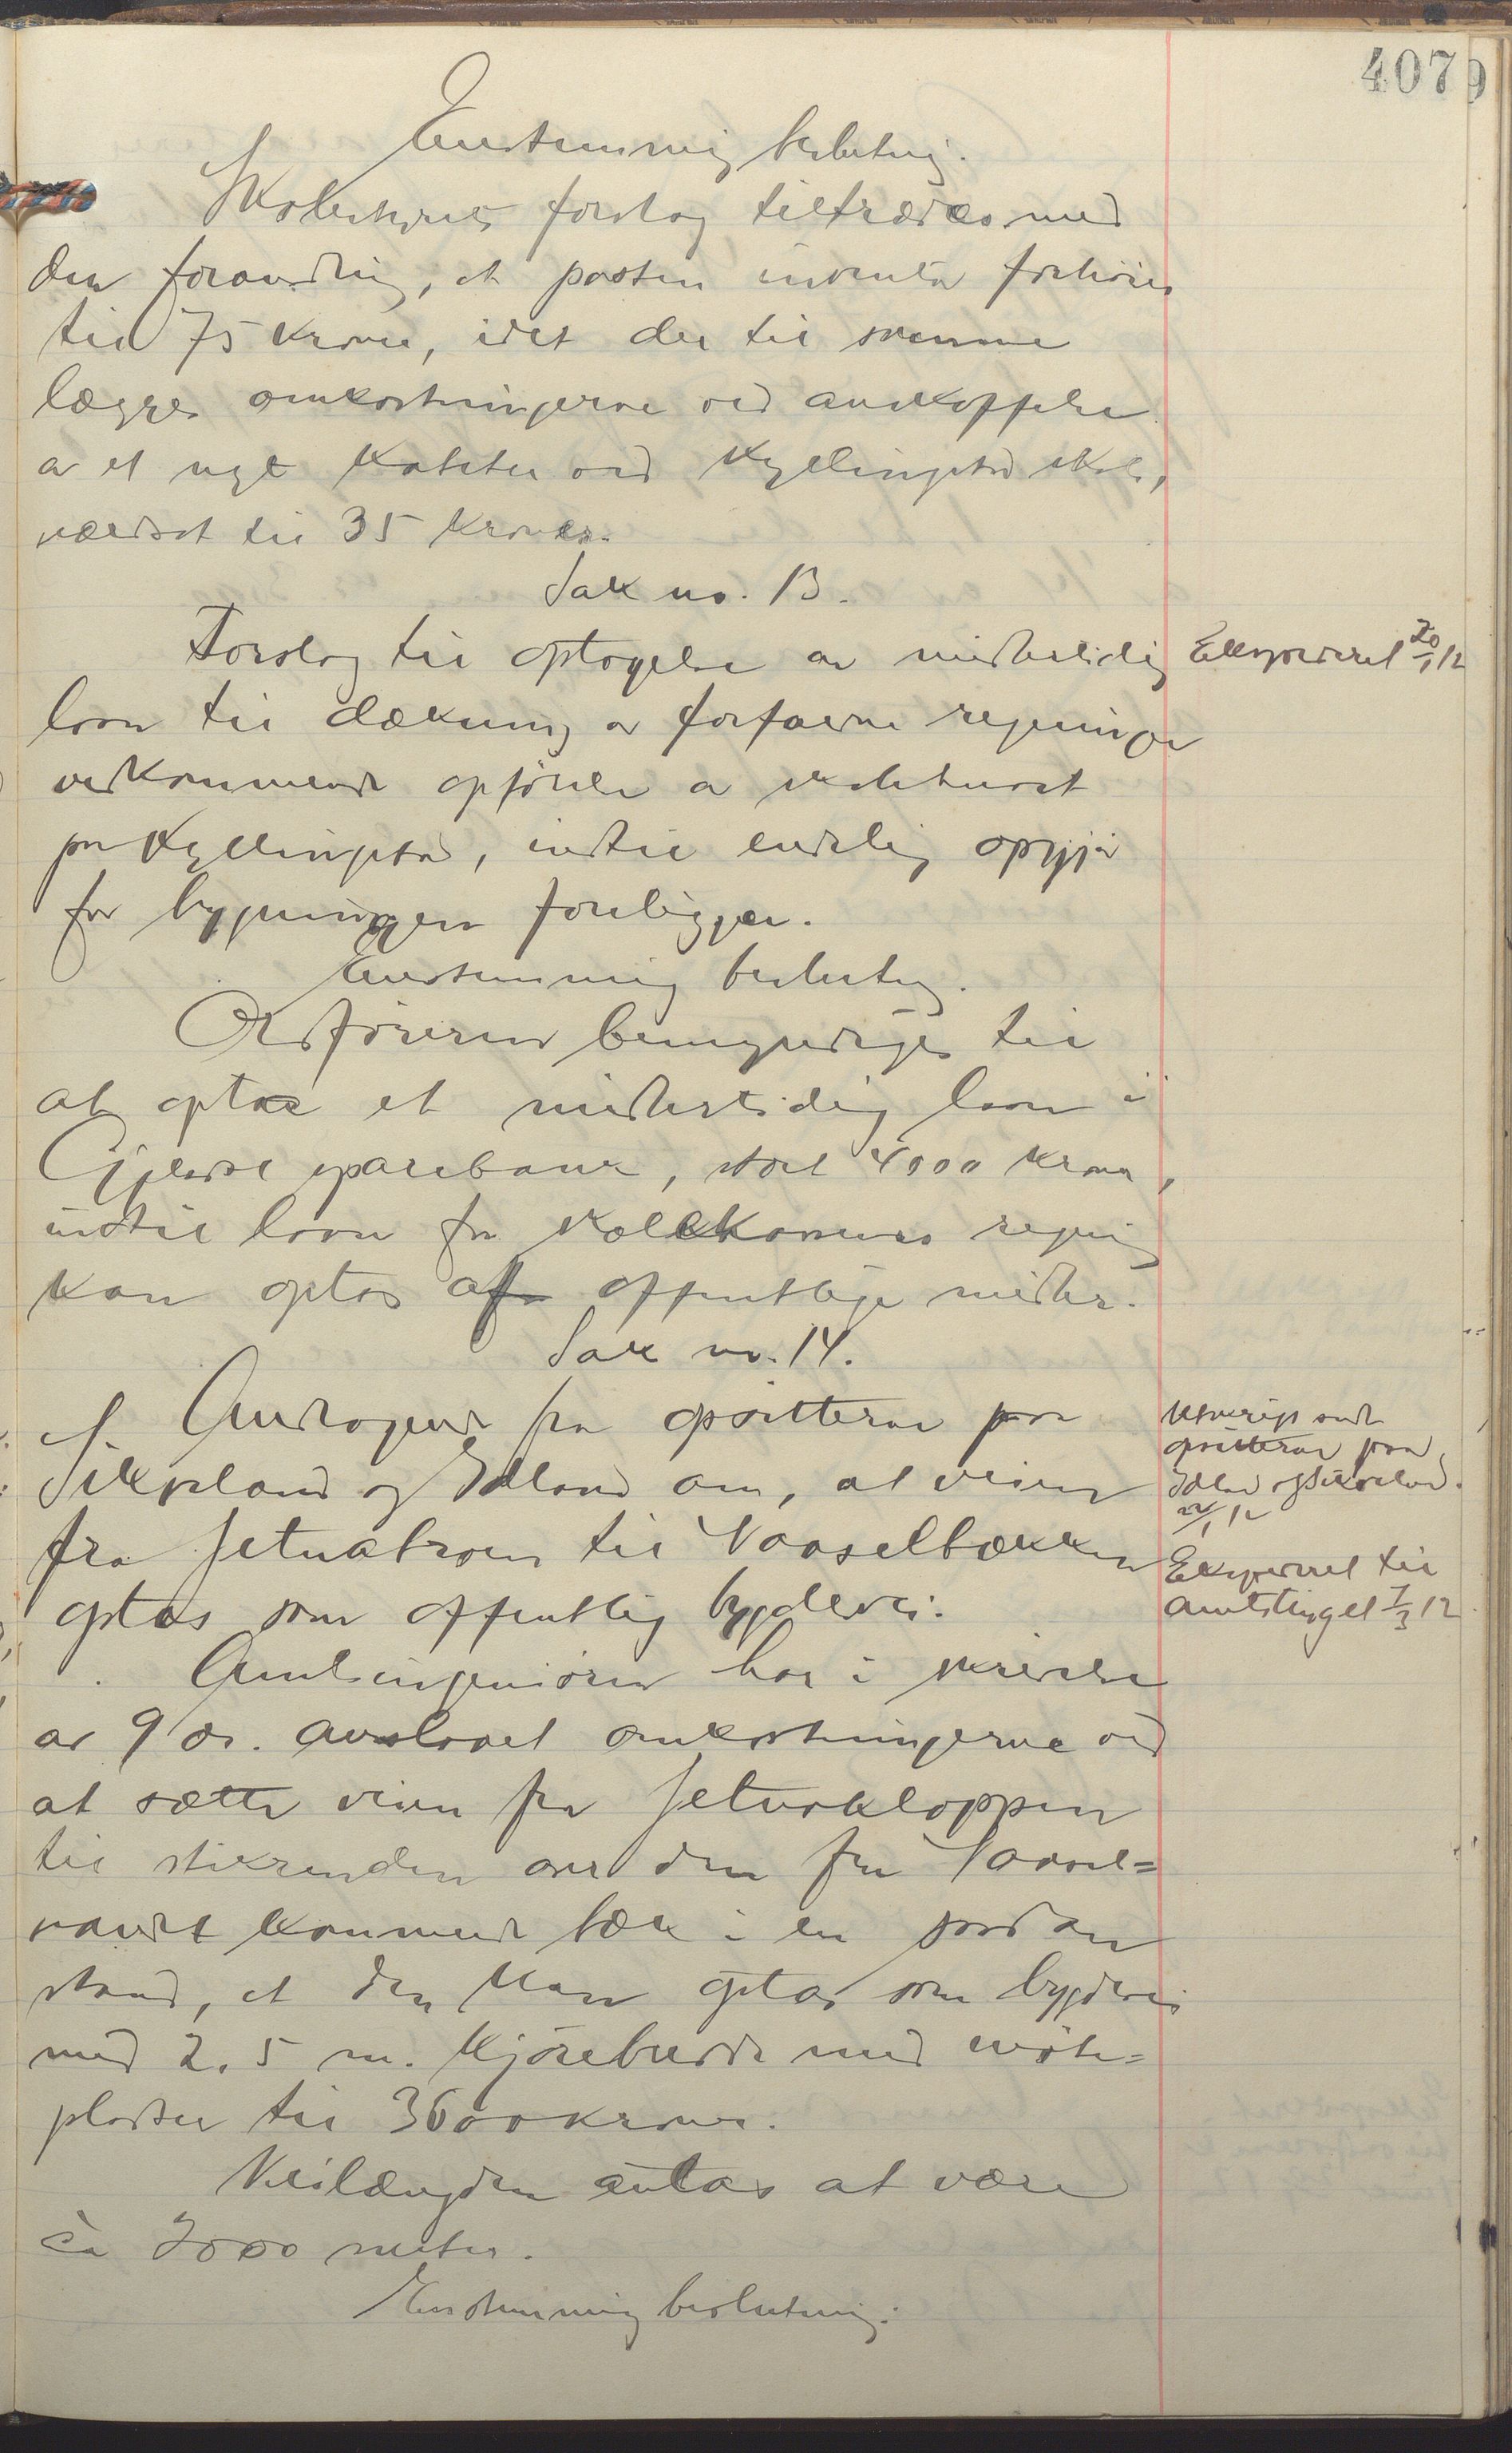 407
Enstemmig beslutning.
Skolestyrets forslag tiltrædes med
den forandring, at posten inventar forhøies
til 75 kroner, idet der til samme
lægges omkostningerne ved anskaffelse
av et nyt kateter ved Kyllingstad skole,
værdsat til 35 kroner.
Sak no. 13.
Forslag til optagelse av midlertidig
Ekspederet 20/1 12
laan til dækning av forfaldne regninger
vedkommende opførelse av skolehuset
paa Kyllingstad, indtil endelig opgjør
for bygningen foreligger.
Enstemmig beslutning.
Ordføreren bemyndiges til
at opta et midlertidig laan i
Gjesdal sparebank, stort 4000 kroner,
indtil laan for skolekassens regning
kan optas af offentlige midler.
Sak no. 14.
Andragende fra opsitterne paa
Sikveland og Edland om, at veien
fra Fetnabroen til Vaaselbækken
optas som offentlig bygdevei.
Utskrift sendt
opsitterne paa
Edland og Sikveland.
22/1 12
Ekspederet til
amtstinget 7/3 12
Amtsingeniøren har i skrivelse
av 9 ds. anslaaet omkostningerne ved
at sætte veien fra Fetnakloppen
til stikrenden over den fra Vaasel=
vandet kommende bæk i en saadan
stand, at den kan optas som bygdevei
med 2.5 m. kjørebredde med møte=
pladser til 3600 kroner.
Veilængden antas at være
ca 2000 meter.
Enstemmig beslutning: